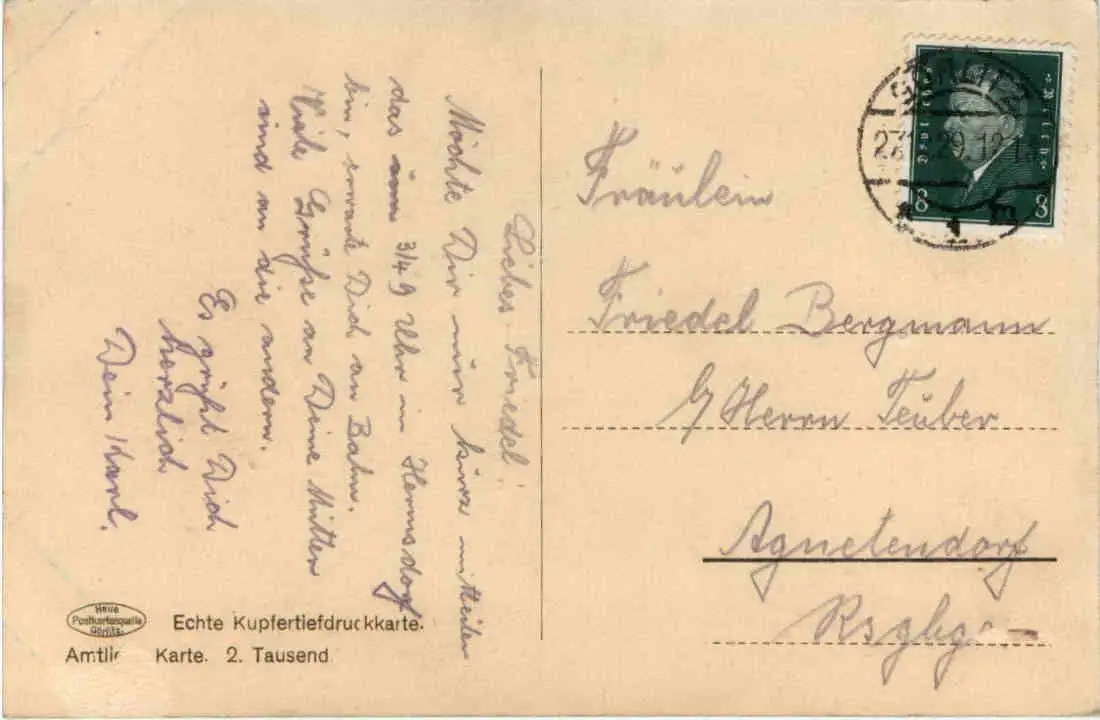 Liebes Friedel!
Möchte Dir nur kurz mitteilen
das 3/4 9 Uhr in Hermsdorf
bin, erwarte Dich an Bahn.
Viele Grüße an Deine Mutter
und an die andern.
Es grüßt Dich
herzlich
Dein Karl.
Fräulein
Friedel Bergmann
b/ Herrn Teuber
Agnetendorf
Rsgbg.
GÖRLITZ
8 8
Neue
Postkartenquelle
Görlitz
Echte Kupfertiefdruckkarte.
Karte. 2. Tausend